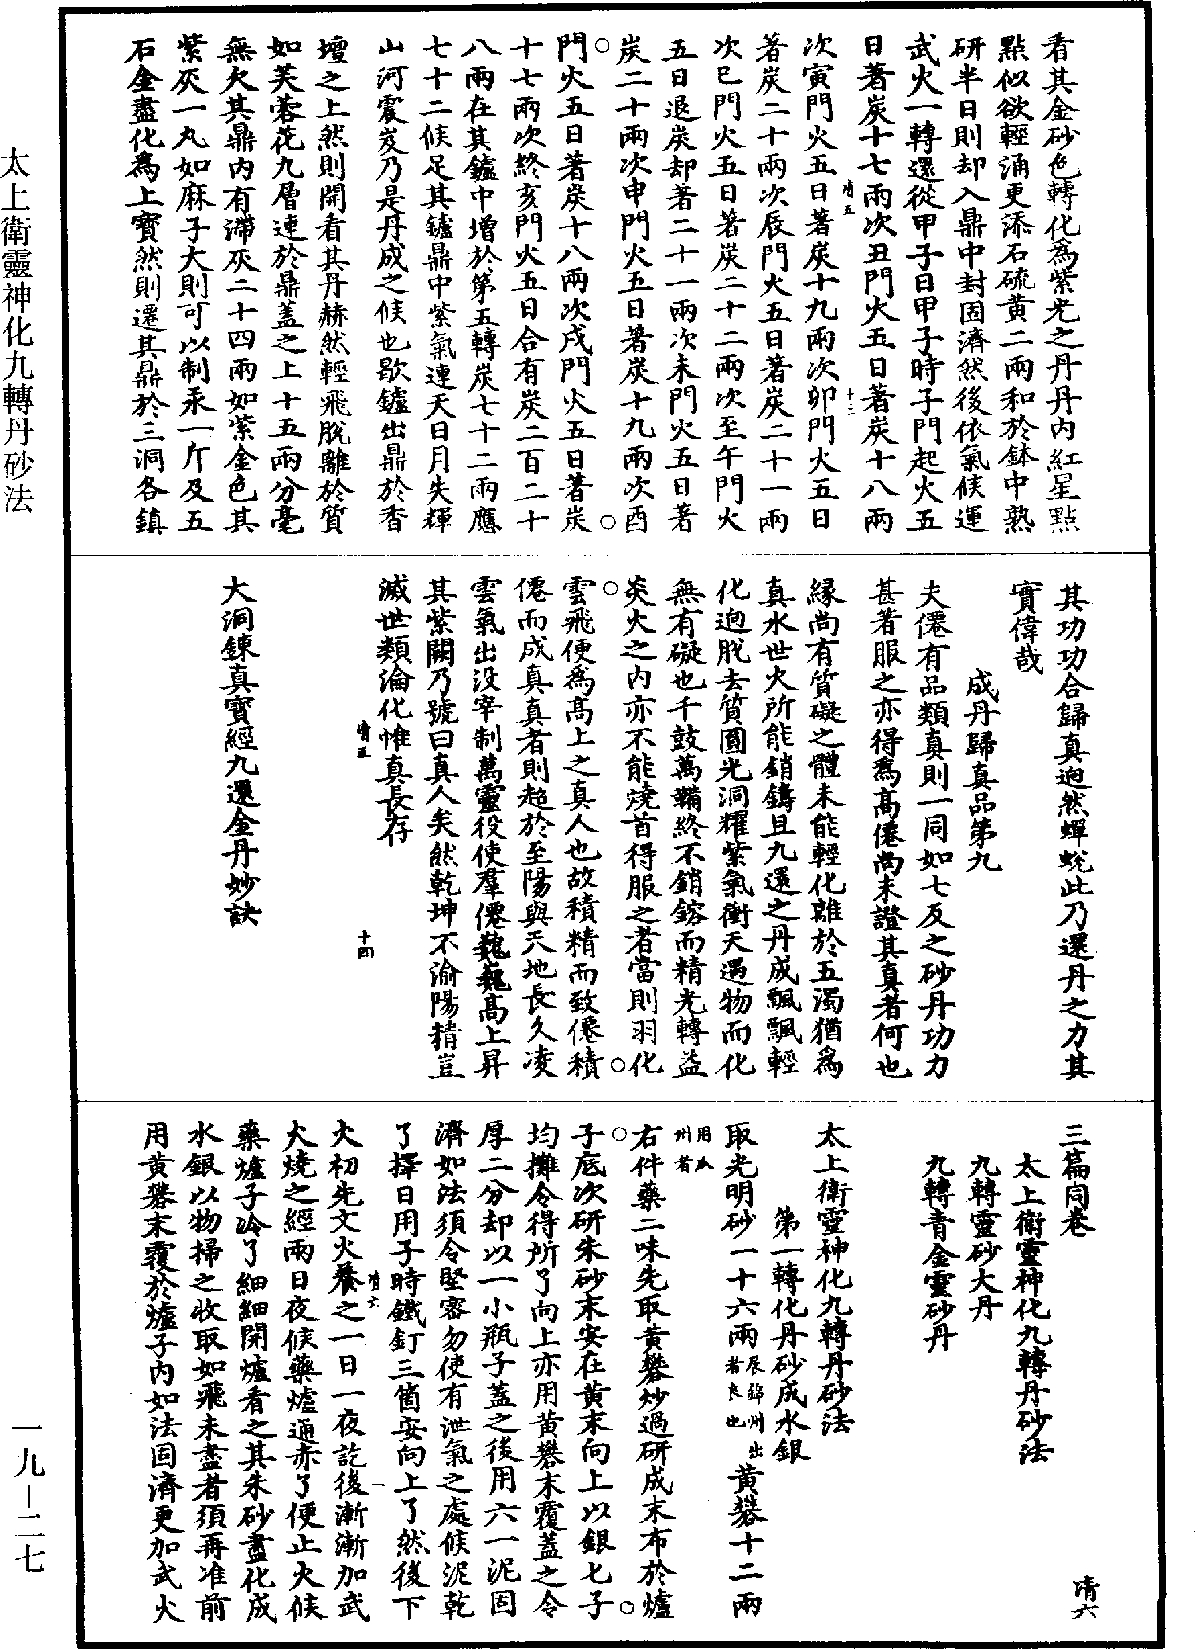 看其金砂色轉化爲紫光之丹丹內紅星點
點似欲輕涌更添石硫黃二兩和於鉢中熟
研半日則却入鼎中封固濟然後依氣候運
武火一轉還從甲子日甲子時子門起火五
日著炭十七兩次丑門火五日著炭十八兩
清五
十三
次寅門火五日著炭十九兩次卯門火五日
著炭二十兩次辰門火五日著炭二十一兩
次巳門火五日著炭二十二兩次至午門火
五日退炭却著二十一兩次未門火五日著
炭二十兩次申門火五日著炭十九兩次酉
門火五日著炭十八兩次戌門火五日著炭
十七兩次終亥門火五日合有炭二百二十
八兩在其鑪中增於第五轉炭七十二兩應
七十二候足其鑪鼎中紫氣連天日月失輝
山河震岌乃是丹成之候也歇鑪出鼎於香
壇之上然則開看其丹赫然輕飛脫離於質
如芙蓉花九層連於鼎蓋之上十五兩分毫
無欠其鼎內有滯灰二十四兩如紫金色其
紫灰一丸如麻子大則可以制汞一斤及五
石金盡化爲上寶然則還其鼎於三洞各鎮
其功功合歸真迥然蟬蛻此乃還丹之力其
實偉哉
成丹歸真品第九
夫僊有品類真則一同如七反之砂丹功力
甚著服之亦得爲高僊尚未證其真者何也
緣尚有質礙之體未能輕化離於五濁猶爲
真水世火所能銷鑄且九還之丹成飄飄輕
化迥脫去質圓光洞耀紫氣衝天遇物而化
無有礙也千鼓萬鞴終不銷鎔而精光轉益
炎火之內亦不能燒首得服之者當則羽化
雲飛便爲高上之真人也故積精而致僊積
僊而成真真者則超於至陽與天地長久凌
雲氣出没宰制萬靈役使羣僊巍巍高上昇
其紫闕乃號曰真人矣然乾坤不渝陽精豈
滅世類淪化惟真長存
清五
十四
大洞鍊真寶經九還金丹妙訣
三篇同卷
清六
太上衛靈神化九轉丹砂法
九轉靈砂大丹
九轉青金靈砂丹
太上衛靈神化九轉丹砂法
第一轉化丹砂成水銀
取光明砂一十六兩辰錦州出者良也黃礬十二兩
用瓜州者
右件藥二味先取黃礬炒過研成末布於爐
子底次研朱砂末安在黃末向上以銀匕子
均攤令得所了向上亦用黃礬末覆蓋之令
厚二分却以一小瓶子蓋之後用六一泥固
濟如法須令堅密勿使有泄氣之處候泥乾
了擇日用子時鐵釘三箇安向上了然後下
清六
一
火初先文火養之一日一夜訖後漸漸加武
火燒之經兩日夜候藥爐通赤了便止火候
藥爐子冷了細細開爐看之其朱砂盡化成
水銀以物掃之收取如飛未盡者須再准前
用黃礬末覆於爐子內如法固濟更加武火
太上衛靈神化九轉丹砂法
一九—二七